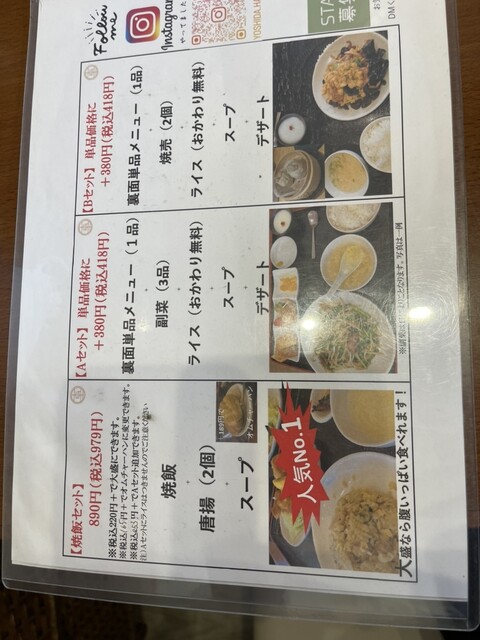 Follow
me
Instagram
やってました
YOSHIDA.HA
STA
募集
DMく
【焼飯セット】
890円(税込979円)
※税込220円+で大盛にできます。
※税込165円+でオムチャーハンに変更できます。
※税込で+Aセット追加できます。
注)Aセットにライスはつきませんのでご注意ください
焼飯
唐揚(2個)
スープ
+189円で
オムチャーハン
人気No.1
大盛なら腹いっぱい食べれます!
【Aセット】単品価格に
+380円(税込418円)
裏面単品メニュー(1品)
副菜(3品)
ライス(おかわり無料)
スープ
デザート
【Bセット】単品価格に
+380円(税込418円)
裏面単品メニュー(1品)
焼売(2個)
ライス(おかわり無料)
スープ
デザート